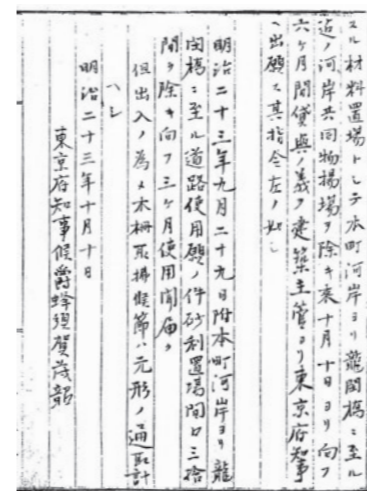 スル材料置場トシテ本町河岸ヨリ龍閑橋ニ至ル
迠ノ河岸共同物揚場ヲ除キ来十月十日ヨリ向フ
六ヶ月間貸與ノ義ヲ建築主管ヨリ東京府知事
ヘ出願ス其指令左ノ如シ
明治二十三年九月二十九日附本町河岸ヨリ龍
閑橋ニ至ル道路使用願ノ件砂利置場間口三拾
間ヲ除キ向フ三ヶ月使用聞届ク
但出入ノ為メ木柵取搏候節ハ元形ノ通取計
ヘシ
明治二十三年十月十日
東京府知事侯爵蜂須賀茂韶